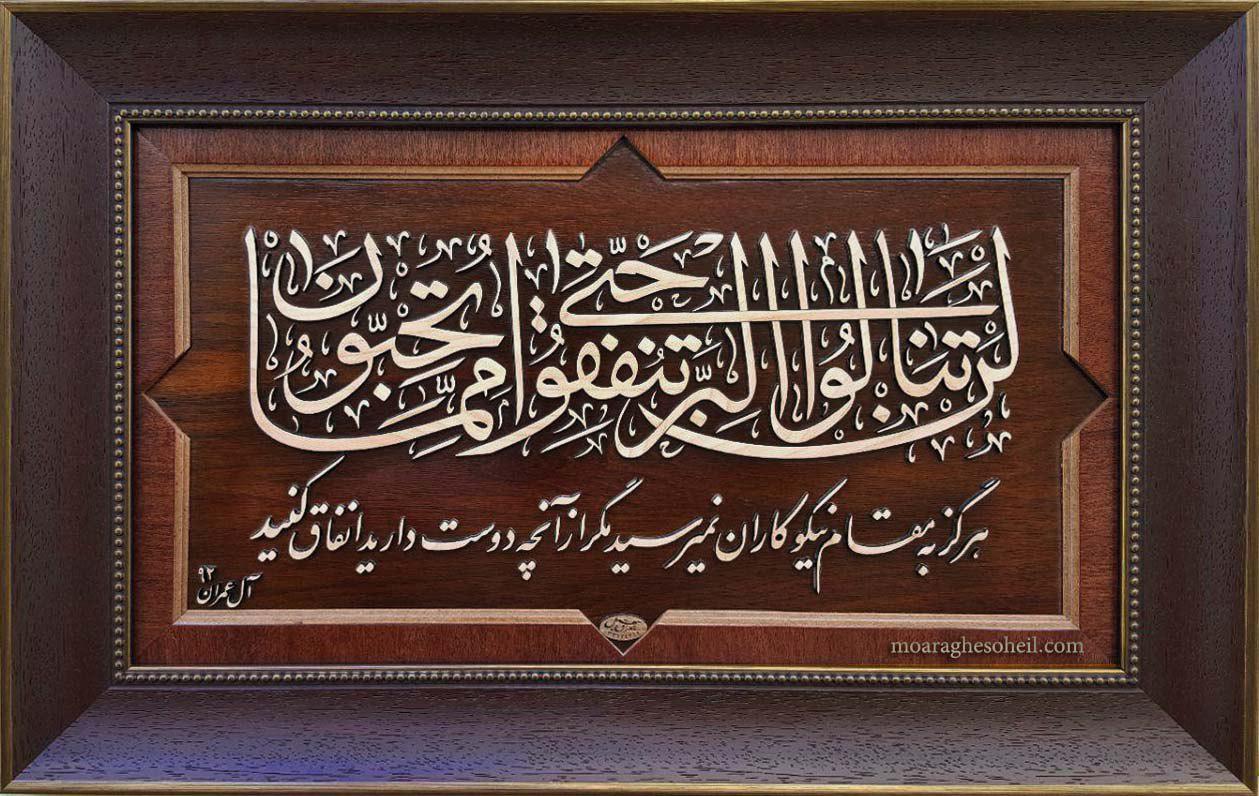 لَنْ تَنَالُوا الْبِرَّ حَتَّىٰ تُنْفِقُوا مِمَّا تُحِبُّونَ
هرگز به مقام نیکوکاران نمیرسید مگر از آنچه دوست دارید انفاق کنید
آل عمران ۹۲
moaraghesoheil.com